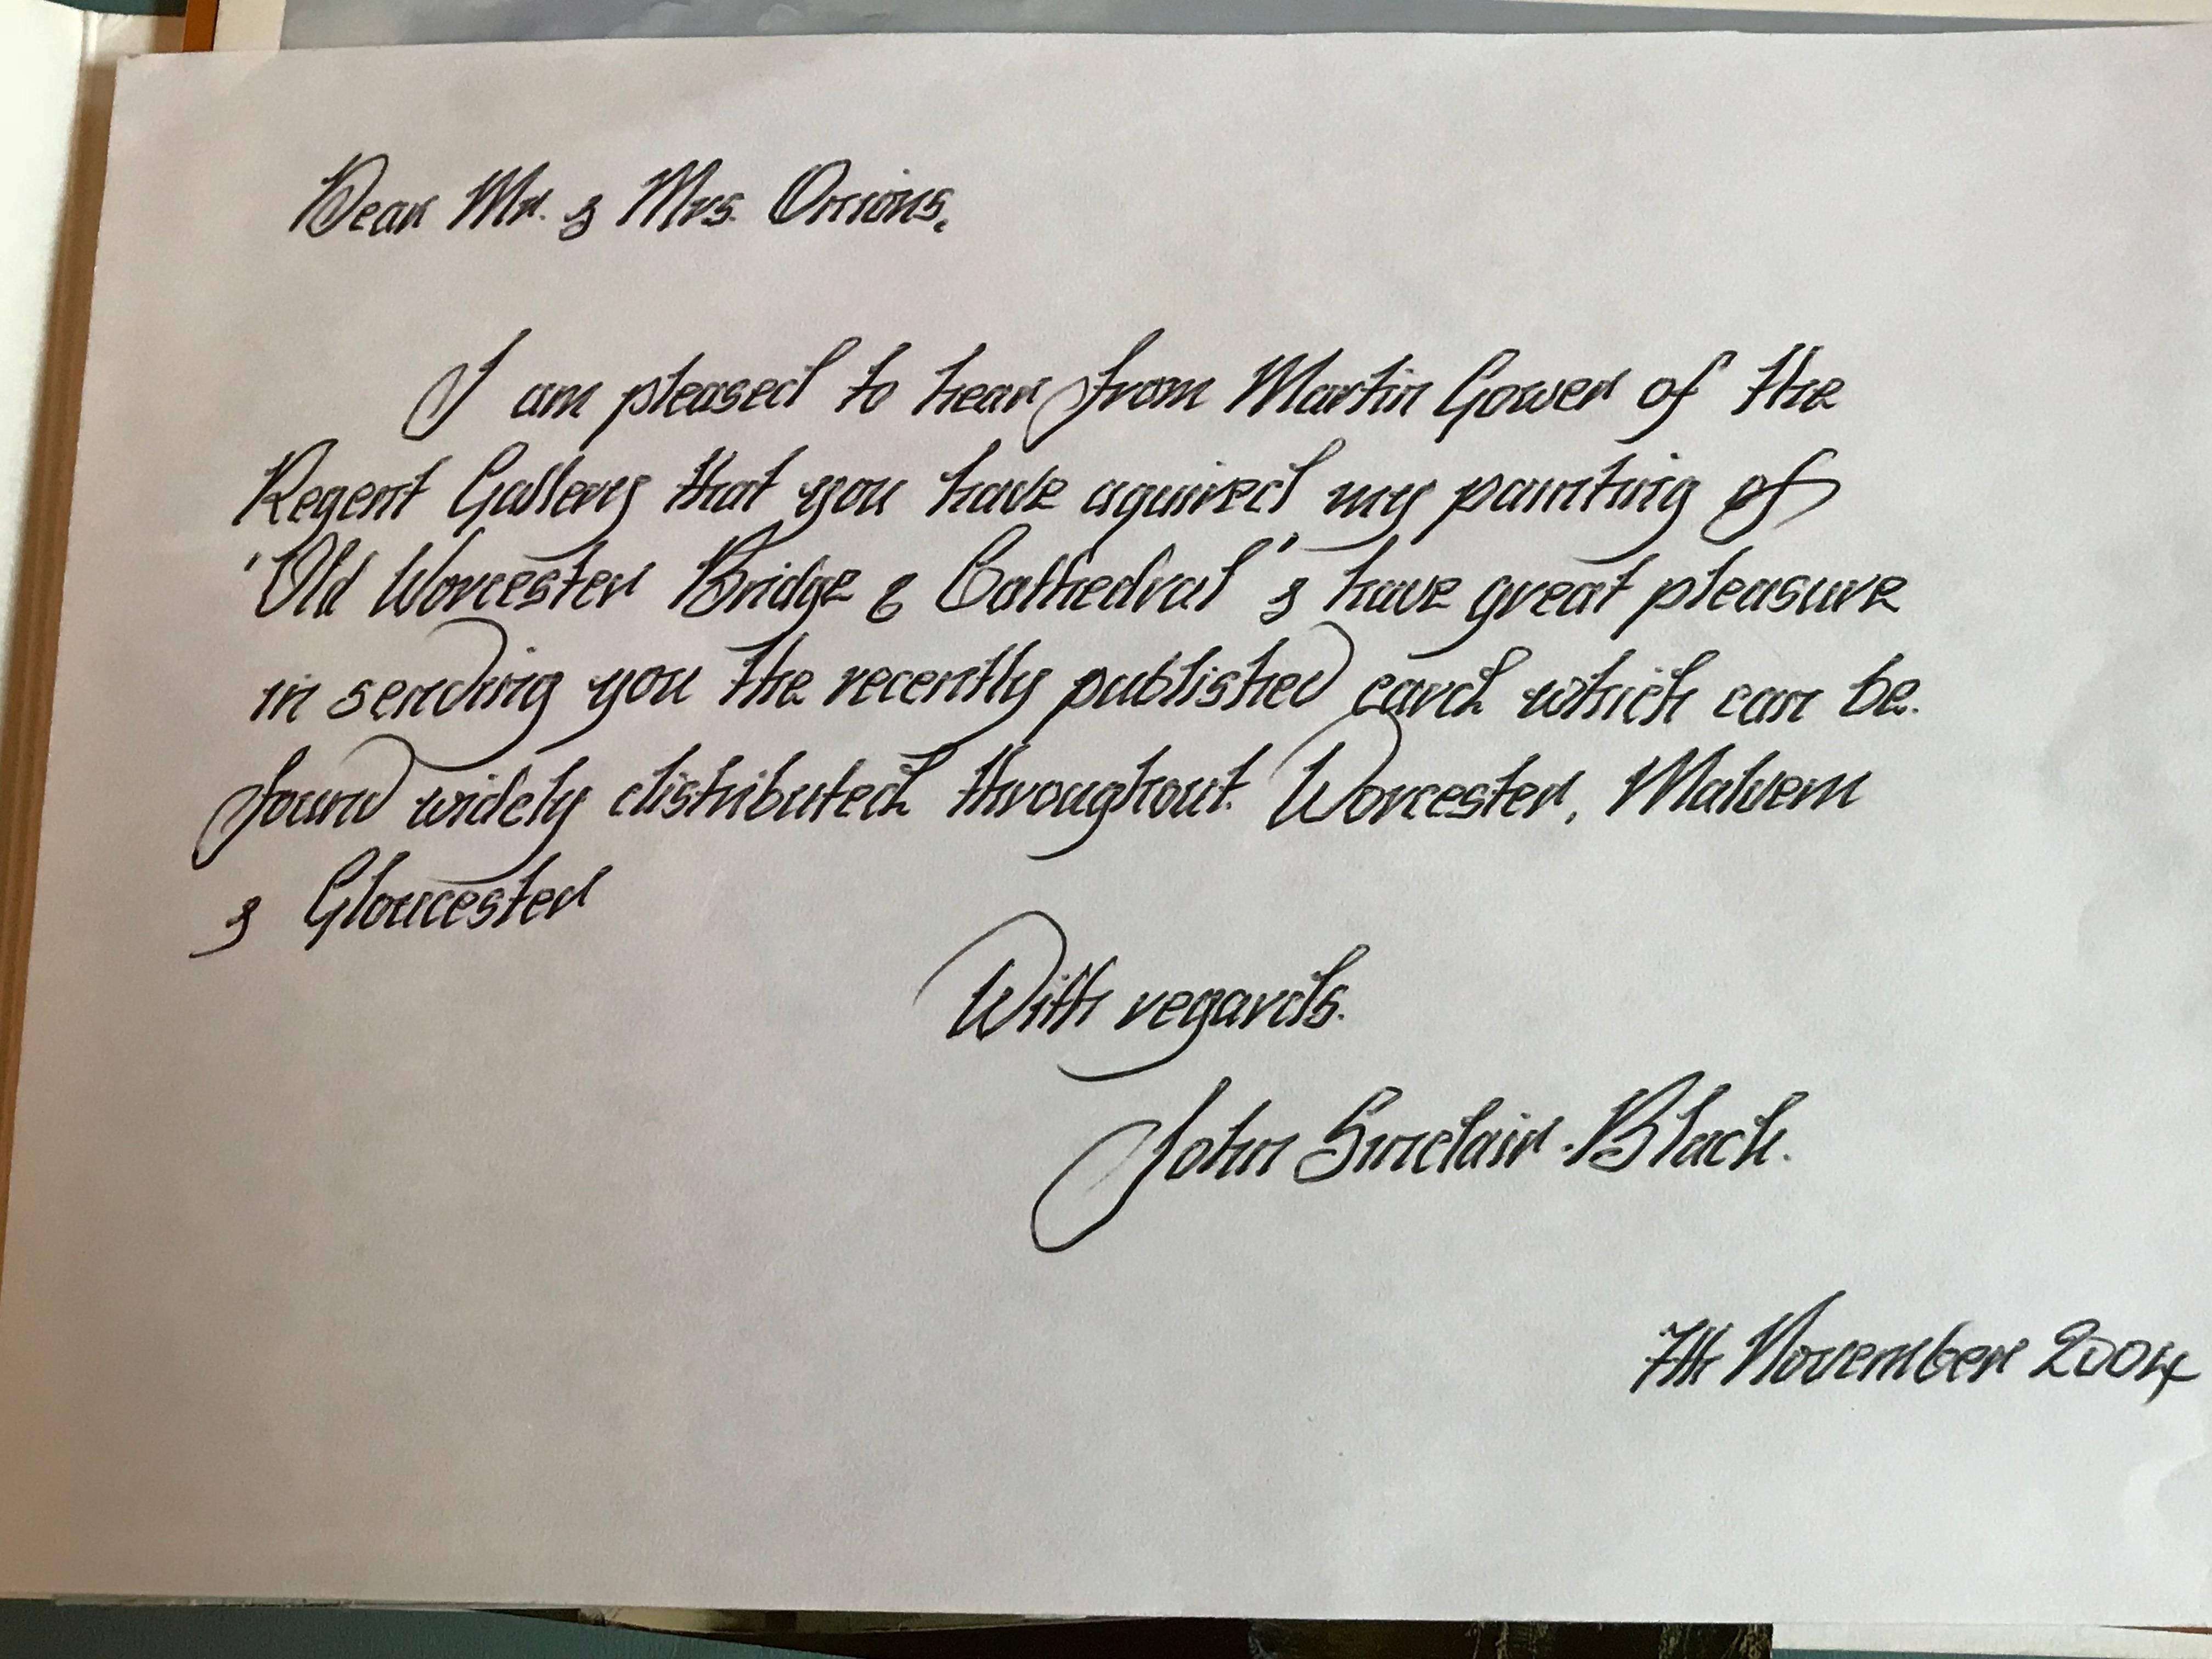 Dear Mr. & Mrs. Orrions,
I am pleased to hear from Martin Gower of the
Regent Gallery that you have aquired my painting of
'Old Worcester Bridge & Cathedral' & have great pleasure
in sending you the recently published card which can be
found widely distributed throughout Worcester, Malvern
& Gloucester
With regards.
John Sinclair-Black.
7th November 2004